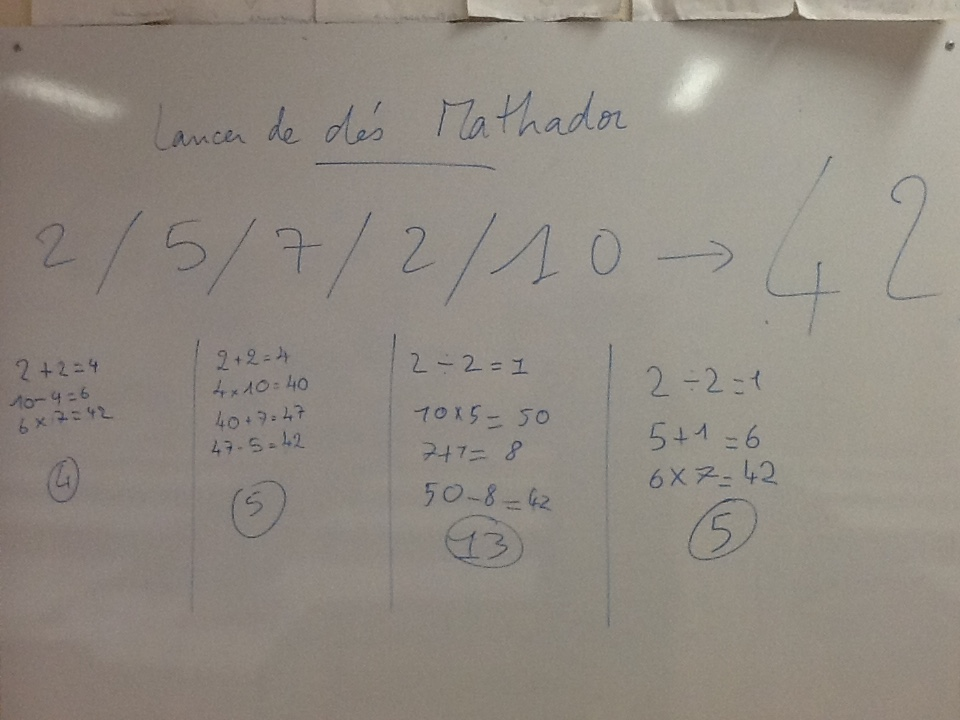 Lancer de dés Mathador
2 / 5 / 7 / 2 / 10 → 42
2 + 2 = 4
10 - 4 = 6
6 x 7 = 42
4
2 + 2 = 4
4 x 10 = 40
40 + 7 = 47
47 - 5 = 42
5
2 ÷ 2 = 1
10 x 5 = 50
7 + 1 = 8
50 - 8 = 42
13
2 ÷ 2 = 1
5 + 1 = 6
6 x 7 = 42
5